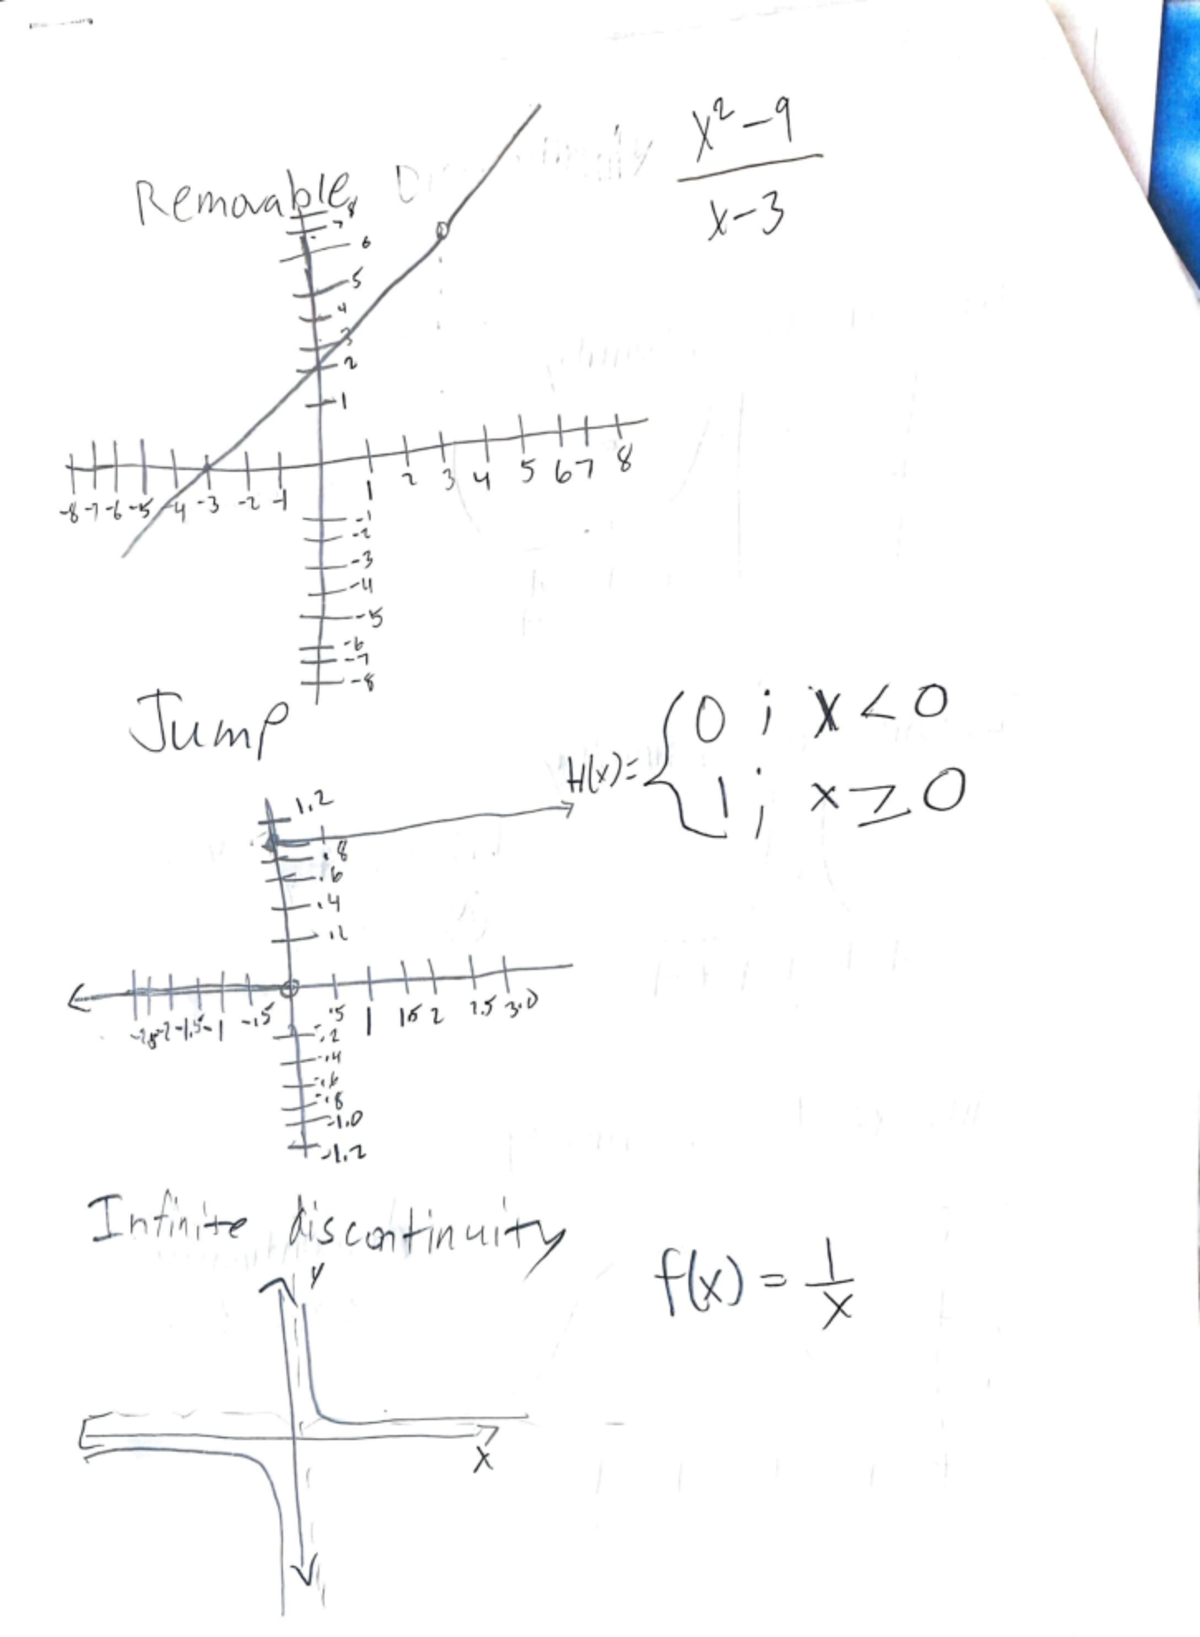 Removable
x² - 9
x - 3
8
7
6
5
4
3
2
1
-8 -7 -6 -5 -4 -3 -2 -1 1 2 3 4 5 6 7 8
-1
-2
-3
-4
-5
-6
-7
-8
Jump
H(x) = { 0 ; x < 0
1 ; x ≥ 0
1.2
.8
.6
.4
.2
-2 -1.5 -1 -.5 .5 1 1.5 2 2.5 3.0
-.2
-.4
-.6
-.8
-1.0
-1.2
Infinite discontinuity
f(x) = 1/x
y
x